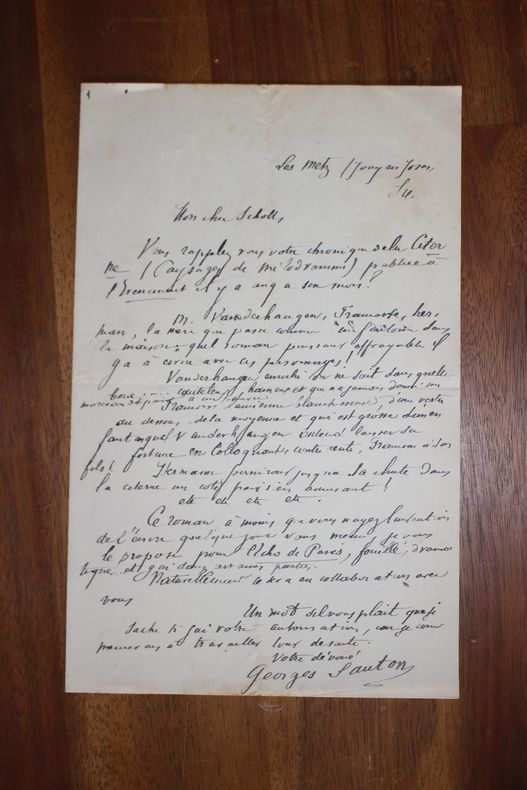 Les Metz / Jouy en Josas
Mon cher Scholl,
Vous rappelez vous votre chronique de la Citer
ne / (Paysages de Mélodrammes) publiée à
l'Evenement il y a un a six mois.
M. Vanderhaugen, Her
man, la qui passe comme un dans
la maison, quel roman puissant effroyable il
y a à écrire avec ces personnages!
Vanderhaugen enrichi on ne sait dans quelle
haineux et qui n'a jamais donné un
morceau de pain à un
ancienne blanchisseuse d'une vertu
au dessous de la moyenne et qui est grosse d'un en
fant auquel Vanderhaugen entend laisser sa
fortune en contre à son
fils! Hermann jusqu'à la chute dans
la citerne un coté parisien amusant!
etc etc etc etc.
Ce roman à moins que vous n'ayez l'intention
de l'écrire quelque jour vous même je vous
le propose pour l'Echo de Paris, fouillé, drama
tique et
Naturellement ce sera en collaboration avec
vous
Un mot s'il vous plait que je
sache si j'ai votre autorisation, car je com
mencerai à travailler tout de suite.
Votre dévoué
Georges Sauton